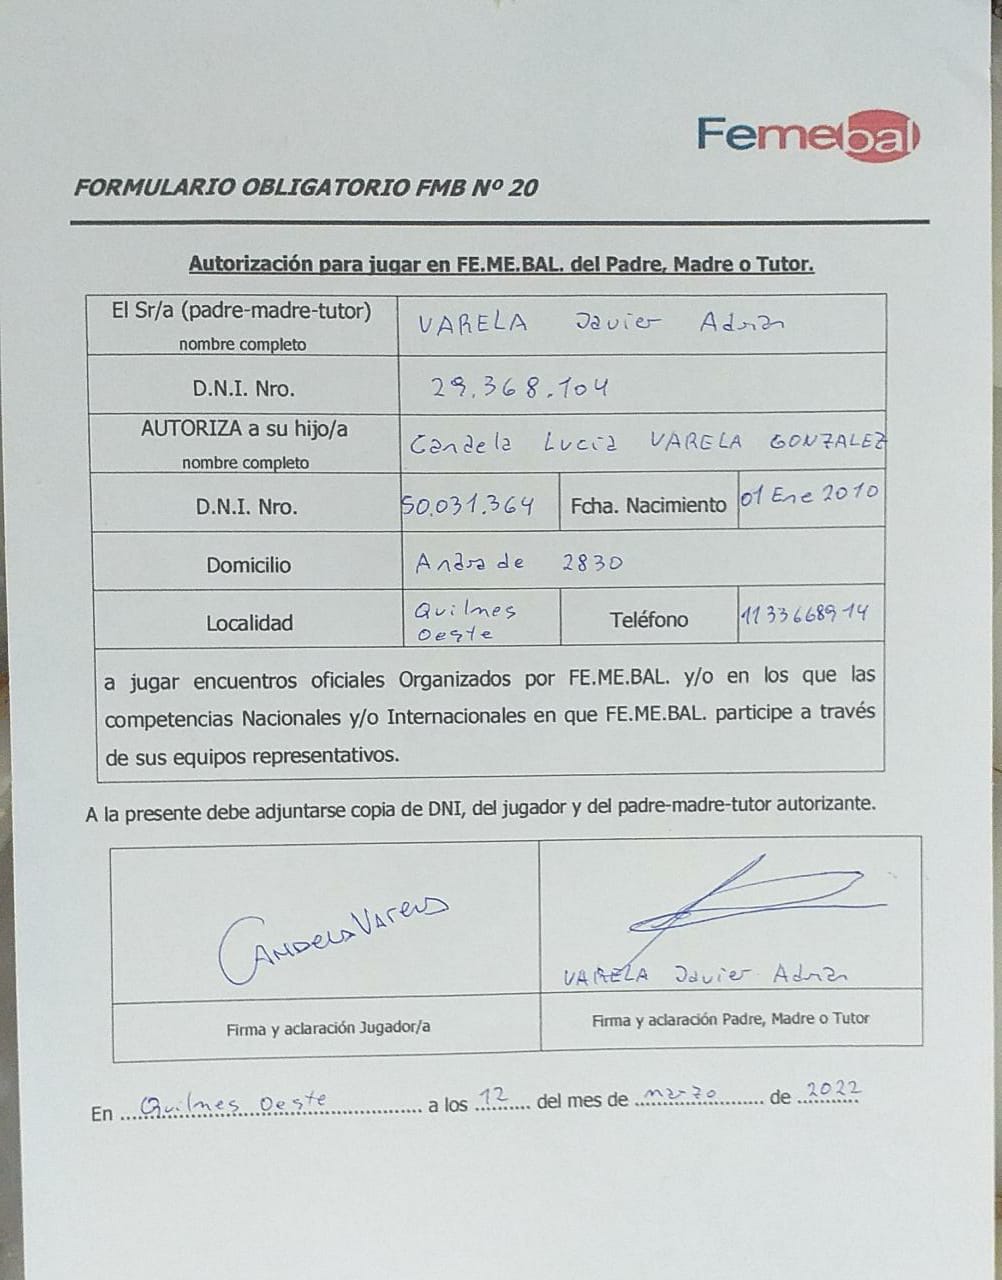 Femebal
FORMULARIO OBLIGATORIO FMB Nº 20
Autorización para jugar en FE.ME.BAL. del Padre, Madre o Tutor.
El Sr/a (padre-madre-tutor)
nombre completo
VARELA Javier Adrian
D.N.I. Nro.
29.368.104
AUTORIZA a su hijo/a
nombre completo
Candela Lucia VARELA GONZALEZ
D.N.I. Nro.
50.031.364
Fcha. Nacimiento
01 Ene 2010
Domicilio
Andrade 2830
Localidad
Quilmes
Oeste
Teléfono
1133668914
a jugar encuentros oficiales Organizados por FE.ME.BAL. y/o en los que las
competencias Nacionales y/o Internacionales en que FE.ME.BAL. participe a través
de sus equipos representativos.
A la presente debe adjuntarse copia de DNI, del jugador y del padre-madre-tutor autorizante.
CANDELA VARELA
VARELA Javier Adrian
Firma y aclaración Jugador/a
Firma y aclaración Padre, Madre o Tutor
En Quilmes Oeste a los 12 del mes de marzo de 2022